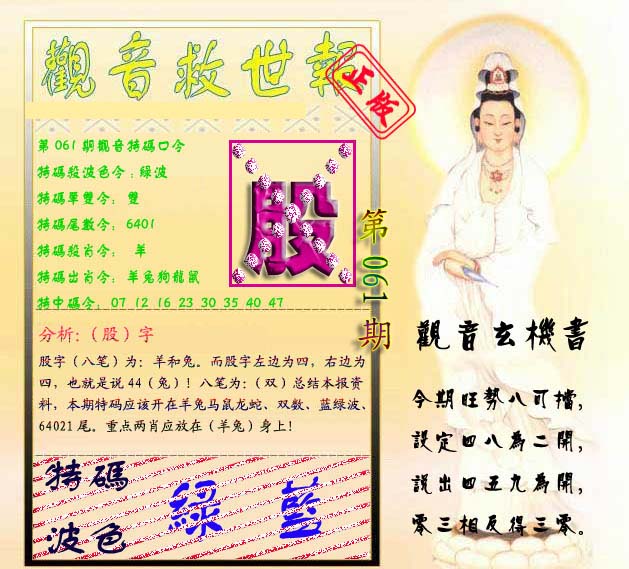 觀音救世報
正版
第061期觀音特碼口令
特碼殺波色令:綠波
特碼單雙令: 雙
特碼尾數令: 6401
特碼殺肖令: 羊
特碼出肖令: 羊兔狗龍鼠
特中碼令: 07 12 16 23 30 35 40 47
股
第061期
分析:(股)字
股字(八笔)为:羊和兔。而股字左边为四,右边为
四,也就是说44(兔)!八笔为:(双)总结本报资
料,本期特码应该开在羊兔马鼠龙蛇、双数、蓝绿波、
64021尾。重点两肖应放在(羊兔)身上!
特碼
波色
綠 藍
觀音玄機書
今期旺勢八可擋,
設定四八為二開,
說出四五九為開,
零三相反得三零。